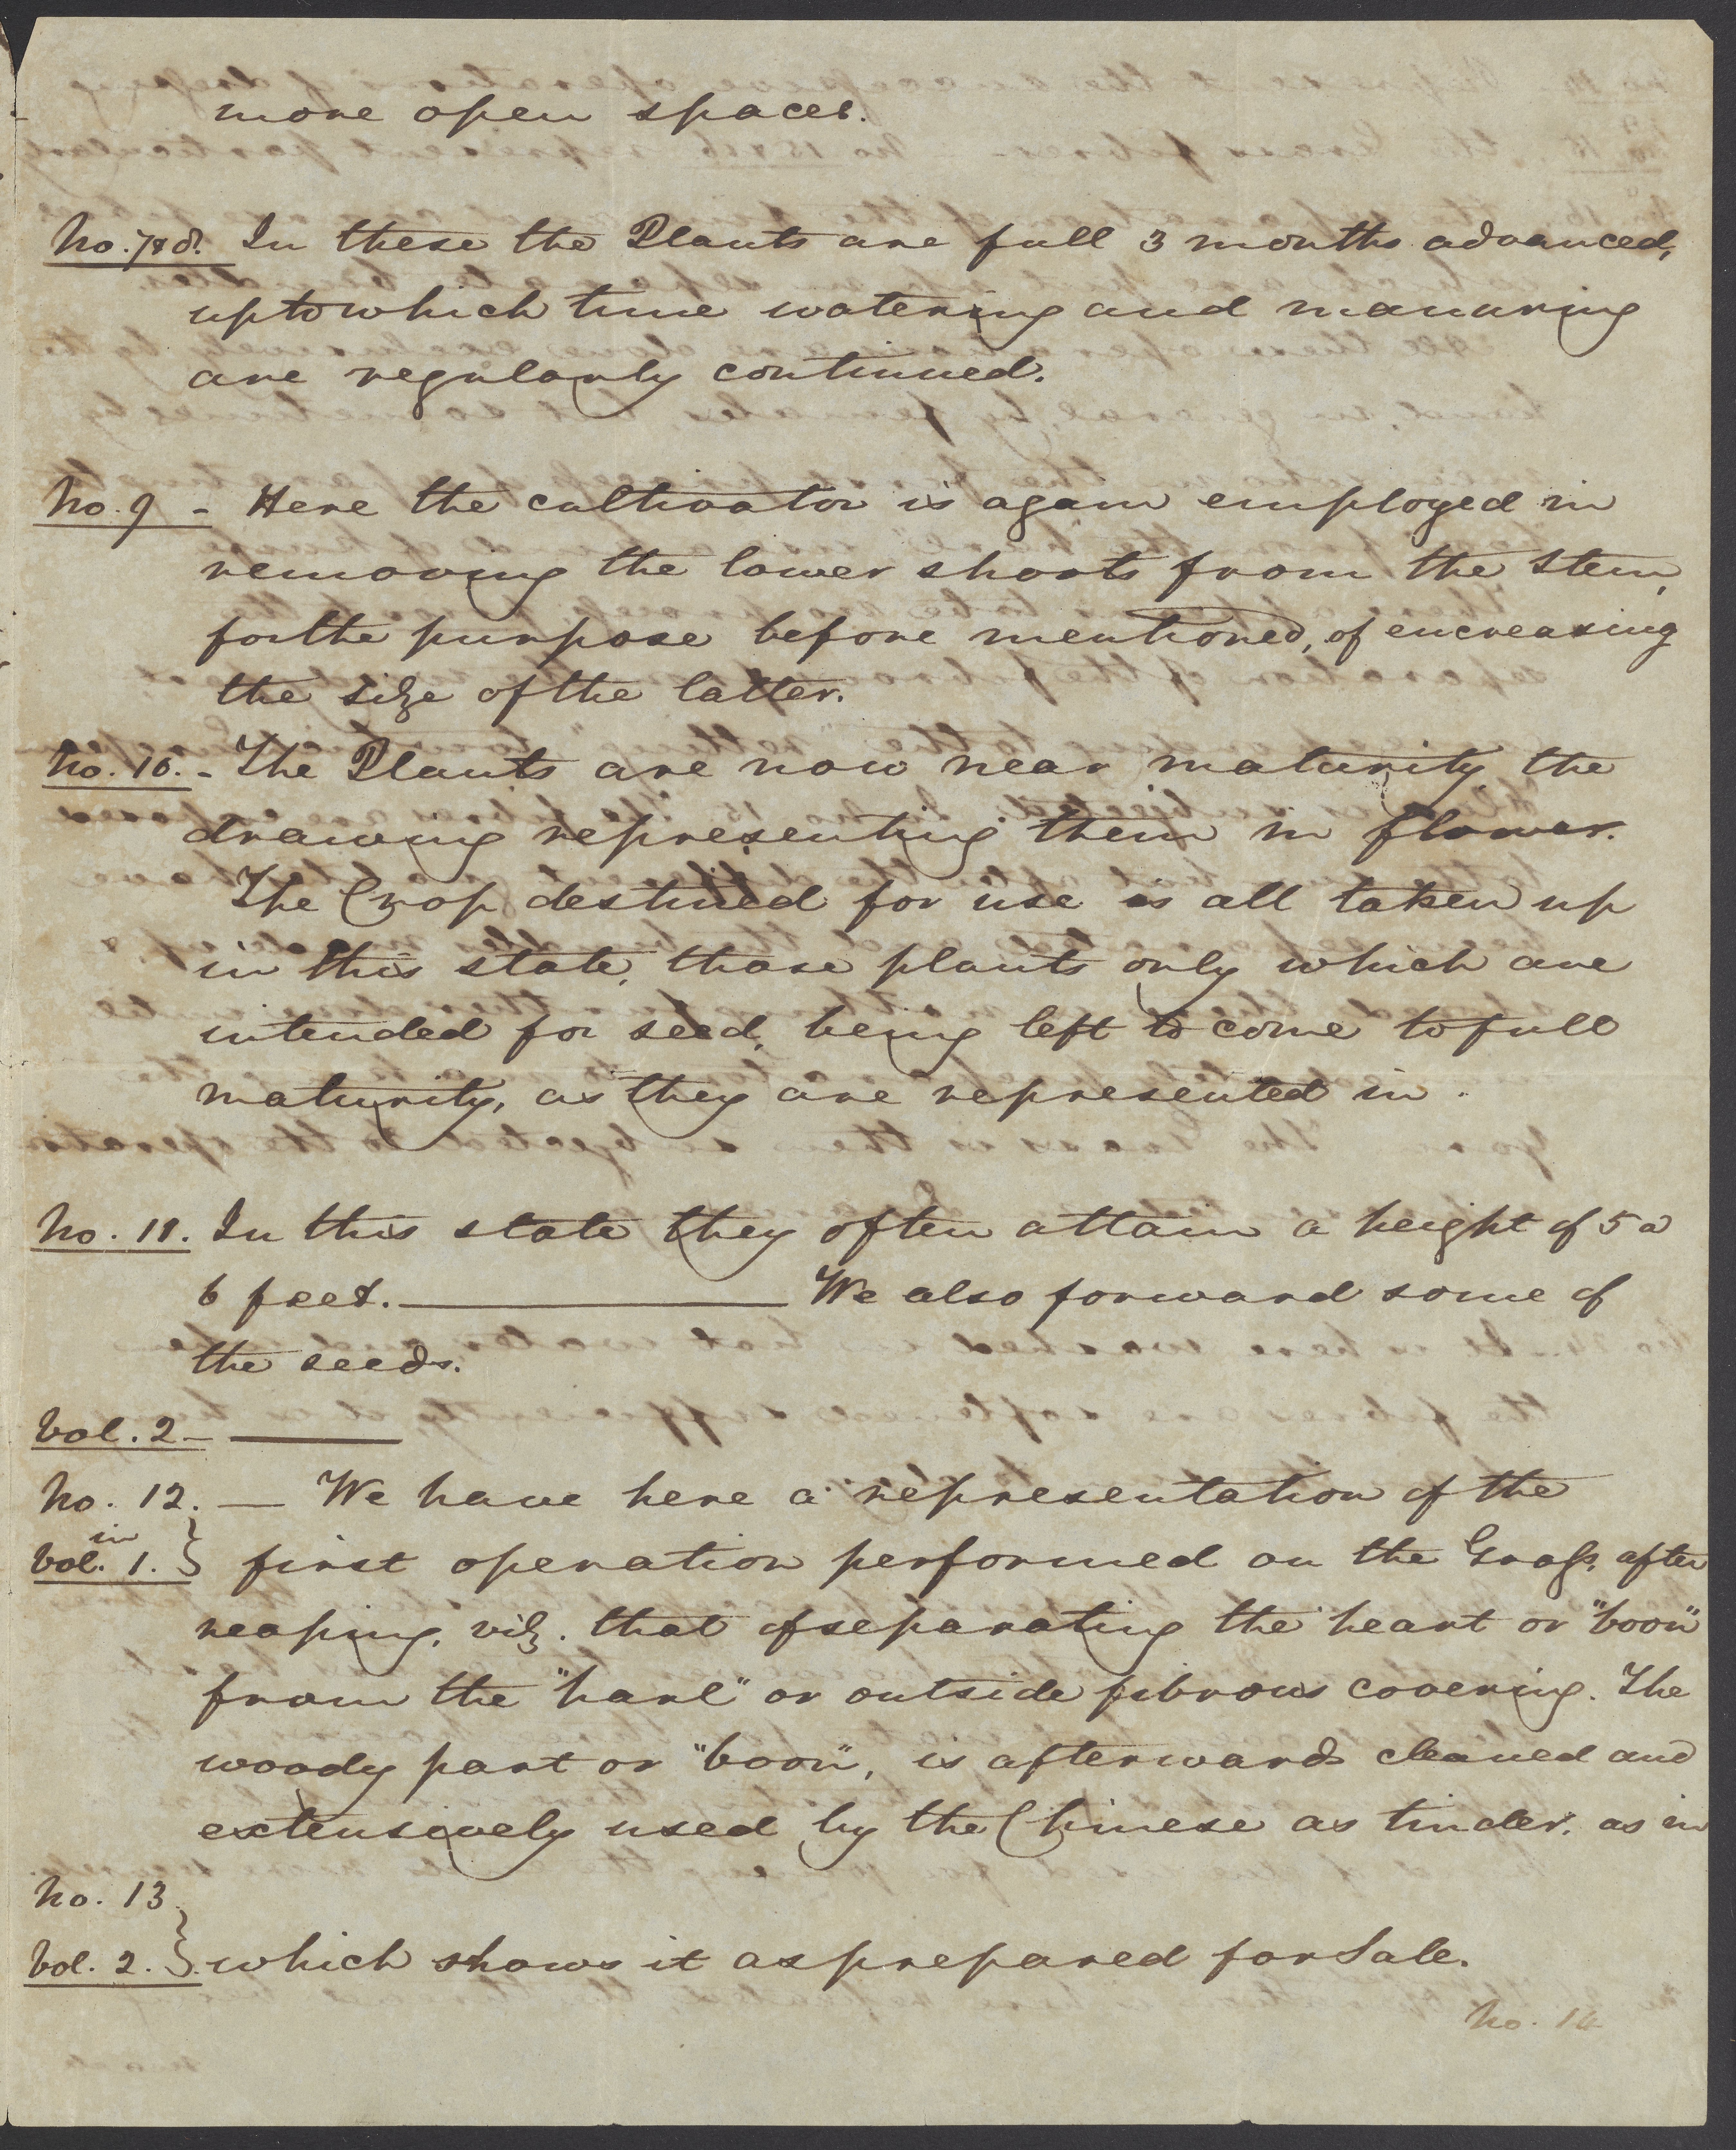 more open spaces.
No. 7 & 8. In these the Plants are full 3 months advanced,
up to which time watering and manuring
are regularly continued.
No. 9 - Here the cultivator is again employed in
removing the lower shoots from the Stem,
for the purpose before mentioned, of encreasing
the size of the latter.
No. 10. - The Plants are now near maturity, the
drawing representing them in flower.
The Crop destined for use is all taken up
in this state, those plants only which are
intended for seed, being left to come to full
maturity, as they are represented in.
No. 11. In this state they often attain a height of 5 a
6 feet. ——— We also forward some of
the seeds.
Vol. 2 - ———
No. 12. — We have here a representation of the
in
Vol. 1. } first operation performed on the Grass, after
reaping, viz. that of separating the heart or "boon"
from the "harl" or outside fibrous covering. The
woody part or "boon", is afterwards cleaned and
extensively used by the Chinese as tinder, as in
No. 13
Vol. 2. } which shows it as prepared for Sale.
No. 14